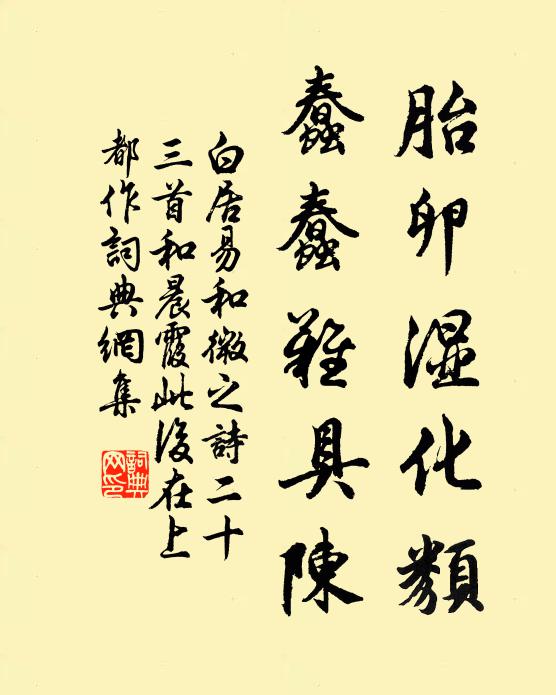 胎卵湿化類
蠢蠢難具陳
白居易和微之詩二十
三首和晨霞此後在上
都作詞典網集
詞典
网印